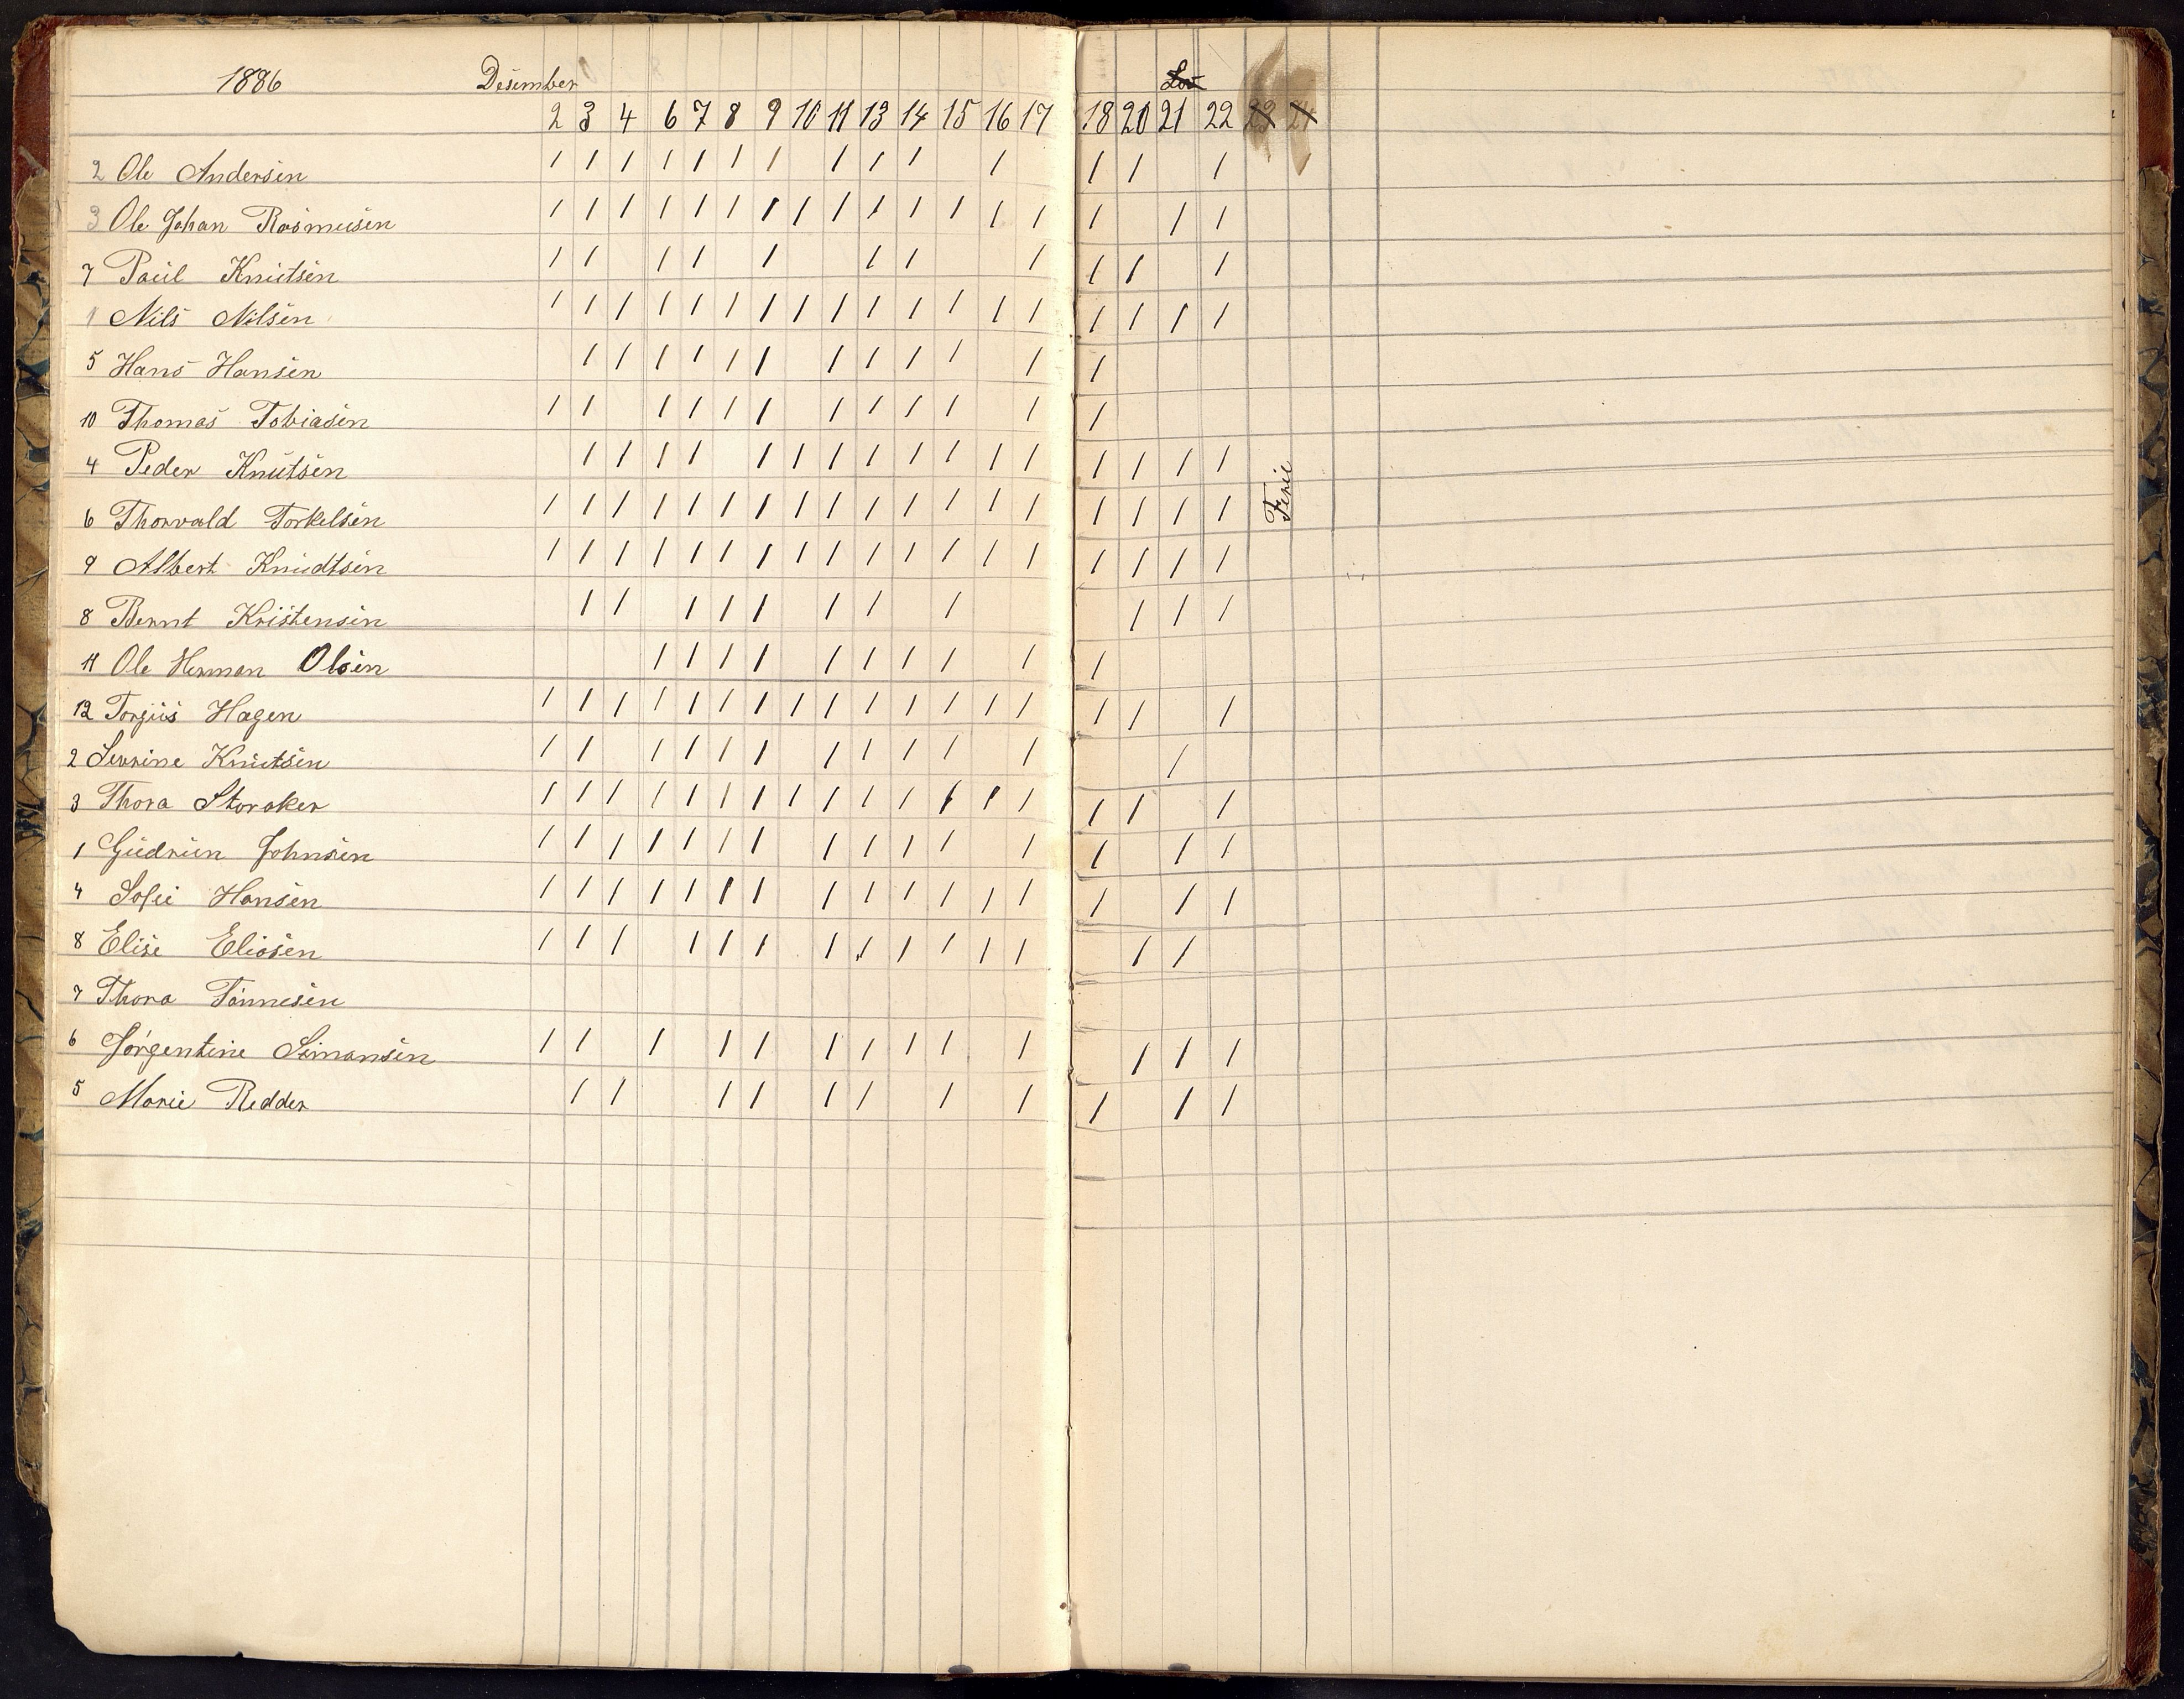 1886 Desember
2 3 4 6 7 8 9 10 11 13 14 15 16 17 18 20 21 22 23 24
2 Ole Andersen / / / / / / / / / / / / / /
3 Ole Johan Rasmusen / / / / / / / / / / / / / / / / /
7 Paul Knutsen / / / / / / / / / / /
1 Nils Nilsen / / / / / / / / / / / / / / / / / /
5 Hans Hansen / / / / / / / / / / / /
10 Thomas Tobiasen / / / / / / / / / / / /
4 Peder Knutsen / / / / / / / / / / / / / / / /
6 Thorvald Torkelsen / / / / / / / / / / / / / / / / / /
Ferie
9 Albert Knudtsen / / / / / / / / / / / / / / / / / /
8 Bernt Kristensen / / / / / / / / / / /
11 Ole Herman Olsen / / / / / / / / / /
12 Torjus Hagen / / / / / / / / / / / / / / / / /
2 Severine Knutsen / / / / / / / / / / / /
3 Thora Storaker / / / / / / / / / / / / / / / / /
1 Gudrun Johnsen / / / / / / / / / / / / / / /
4 Sofie Hansen / / / / / / / / / / / / / / / /
8 Elise Eliasen / / / / / / / / / / / / / /
7 Thora Tønnesen
6 Jørgentine Simonsen / / / / / / / / / / / / /
5 Marie Redder / / / / / / / / / / /